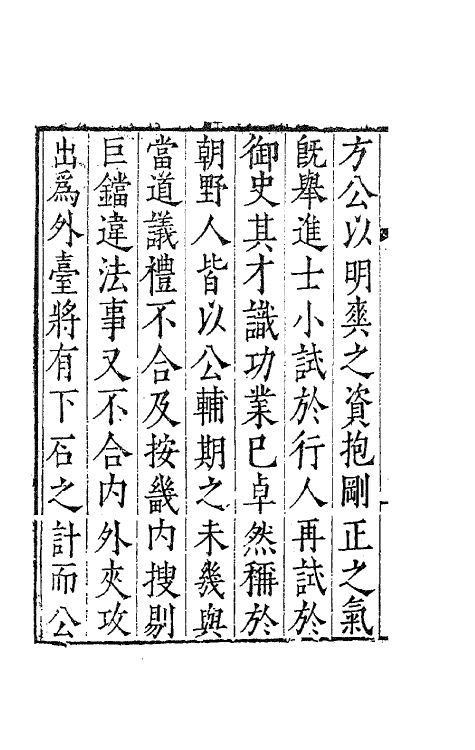 方公以明爽之資抱剛正之氣
旣舉進士小試於行人再試於
御史其才識功業巳卓然稱於
朝野人皆以公輔期之未幾與
當道議禮不合及按畿内搜剔
巨鐺違法事又不合内外夾攻
出爲外臺將有下石之計而公